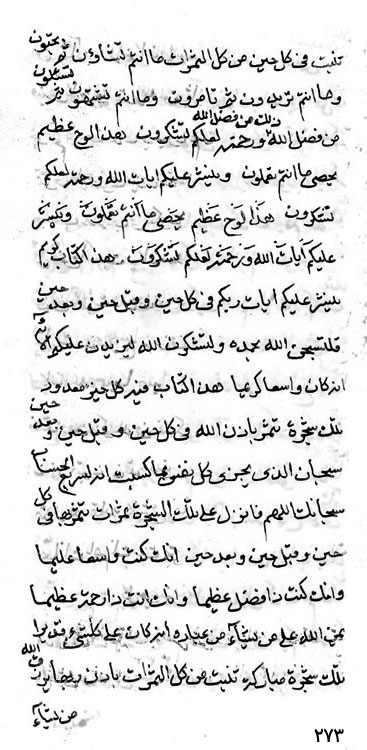 تنبت فی كل حین من كل الثمرات ما انتم تشاؤن ثم تحبون
وما انتم تریدون ثم تامرون وما انتم تشتهون ثم تسئلون
من فضل الله ورحمته لعلكم تشكرون ذلك من فضل الله هذا لوح عظیم
یحصی ما انتم تعملون ویبشر علیكم ایات الله ورحمته لعلكم
تشكرون هَذا لوح عَظیم یحصی مَا انتُم تعملُونَ ویبشر
علیكم اَیاتَ الله وَرحمته لَعلكم تشكُروَنَ هذا كتاب كریم
یبشر علیكم ایات ربكم فی كل حین وقبل حین وبعد حین
فلتسبحن الله بحمده ولتشكرن الله لیزیدن علیكم
انه كان واسعا كریما هذا كتاب فیه كل حین
تلك شجرة تثمر باذن الله فی كل حین وقبل حین وبعد حین
سبحان الذی یجزی كل نفس بما كسبت انه لسریع الحساب
سبحانك اللهم فانزل علی تلك الشجرة ثمرات تثمر بها فی كل
حین وقبل حین وبعد حین انك كنت واسعا علیما
وانك كنت ذا فضل عظیما وانك انت ذا رحمة عظیما
یمن الله علی من یشآء من عباده انه كان علی كلشیء قدیرا
تلك شجرة مباركة تنبت من كل الثمرات باذن الله
من یشآء
٢٧٣